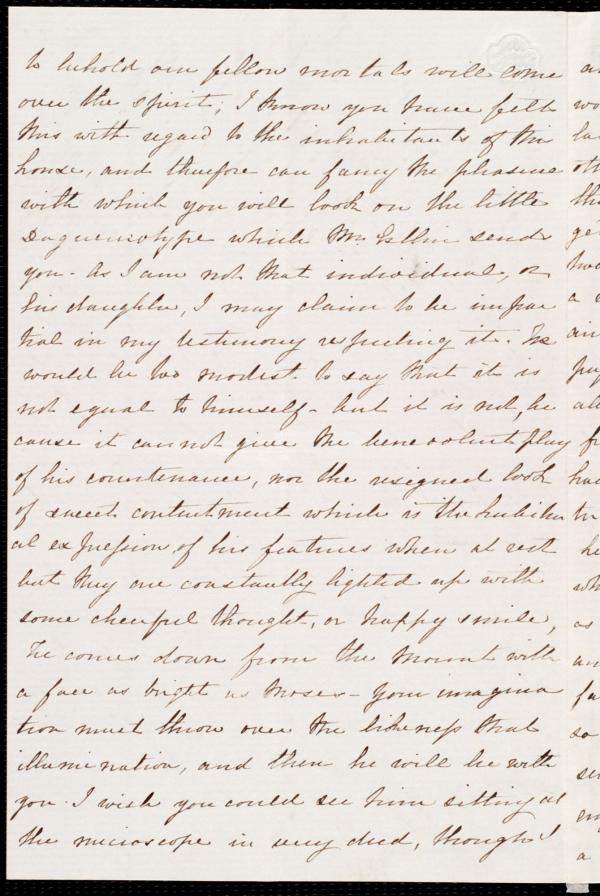 to behold our fellow mortals will come
over the spirit; I know you have felt
this with regard to the inhabitants of this
house, and therefore can fancy the pleasure
with which you will look on the little
Daguerriotype which Mr. Estlin sends
you - As I am not that individual, or
his daughter, I may claim to be impar
tial in my testimony respecting it. He
would be too modest to say that it is
not equal to himself - but it is not, be
cause it cannot give the benevolent play
of his countenance, nor the resigned look
of sweet contentment which is the habitu
al expression of his features when at rest
but they are constantly lighted up with
some cheerful thought, or happy smile,
He comes down from the Mount with
a face as bright as Moses - Your imagina
tion must throw over the likeness that
illumination, and then he will be with
you. I wish you could see him sitting at
the microscope in very deed, though I